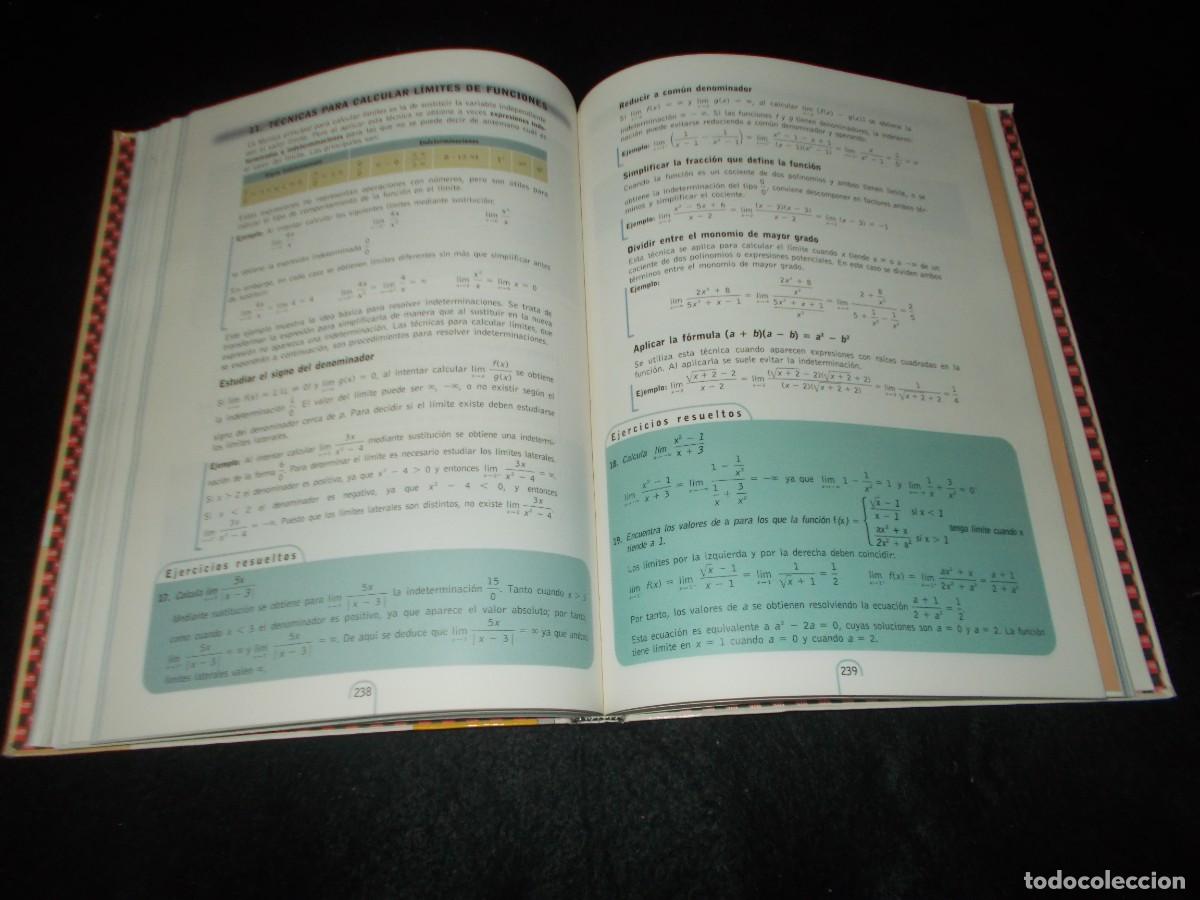 21. TÉCNICAS PARA CALCULAR LÍMITES DE FUNCIONES
La técnica principal para calcular límites es la de sustituir la variable independiente
por el valor límite. Pero al aplicar esta técnica se obtiene a veces expresiones inde-
terminadas o indeterminaciones para las que no se puede decir de antemano cuál es
el valor de límite. Las principales son:
Indeterminaciones
Estas expresiones no representan operaciones con números, pero son útiles para
indicar el tipo de comportamiento de la función en el límite.
Ejemplo: Al intentar calcular los siguientes límites mediante sustitución:
se obtiene la expresión indeterminada 0/0
Sin embargo, en cada caso se obtienen límites diferentes sin más que simplificar antes
de sustituir:
Este ejemplo muestra la idea básica para resolver indeterminaciones. Se trata de
transformar la expresión para simplificarla de manera que al sustituir en la nueva
expresión no aparezca una indeterminación. Las técnicas para calcular límites, que
se expondrán a continuación, son procedimientos para resolver indeterminaciones.
Estudiar el signo del denominador
g(x) = 0, al intentar calcular lim f(x)/g(x) se obtiene
la indeterminación. El valor del límite puede ser ∞, −∞, o no existir según el
signo del denominador cerca de p. Para decidir si el límite existe deben estudiarse
los límites laterales.
Ejemplo: Al intentar calcular lim 3x/(x² − 4) mediante sustitución se obtiene una indetermi-
nación de la forma 6/0. Para determinar el límite es necesario estudiar los límites laterales.
Si x > 2 el denominador es positivo, ya que x² − 4 > 0 y entonces lim 3x/(x² − 4) = ∞.
Si x < 2 el denominador es negativo, ya que x² − 4 < 0, y entonces
lim 3x/(x² − 4) = −∞. Puesto que los límites laterales son distintos, no existe lim 3x/(x² − 4).
Ejercicios resueltos
17. Calcula lim 5x/|x − 3|
Mediante sustitución se obtiene para lim 5x/|x − 3| la indeterminación 15/0. Tanto cuando x > 3
como cuando x < 3 el denominador es positivo, ya que aparece el valor absoluto; por tanto,
lim 5x/|x − 3| = ∞ y lim 5x/|x − 3| = ∞. De aquí se deduce que lim 5x/|x − 3| = ∞ ya que ambos
límites laterales valen ∞.
238
Reducir a común denominador
Si lim f(x) = ∞ y lim g(x) = ∞, al calcular lim (f(x) − g(x)) se obtiene la
indeterminación ∞ − ∞. Si las funciones f y g tienen denominadores, la indetermi-
nación puede evitarse reduciendo a común denominador y operando.
Ejemplo:
Simplificar la fracción que define la función
Cuando la función es un cociente de dos polinomios y ambos tienen límite, o se
obtiene la indeterminación del tipo 0/0, conviene descomponer en factores ambos tér-
minos y simplificar el cociente.
Ejemplo: lim (x² − 5x + 6)/(x − 2) = lim (x − 2)(x − 3)/(x − 2) = lim (x − 3) = −1
Dividir entre el monomio de mayor grado
Esta técnica se aplica para calcular el límite cuando x tiende a ∞ o a −∞ de un
cociente de dos polinomios o expresiones potenciales. En este caso se dividen ambos
términos entre el monomio de mayor grado.
Ejemplo:
Aplicar la fórmula (a + b)(a − b) = a² − b²
Se utiliza esta técnica cuando aparecen expresiones con raíces cuadradas en la
función. Al aplicarla se suele evitar la indeterminación.
Ejemplo: lim (√(x + 2) − 2)/(x − 2) = lim (√(x + 2) − 2)(√(x + 2) + 2)/((x − 2)(√(x + 2) + 2)) = lim 1/(√(x + 2) + 2) = 1/4
Ejercicios resueltos
18. Calcula lim (x² − 1)/(x + 3)
lim (x² − 1)/(x + 3) = lim (1 − 1/x²)/(1/x + 3/x²) = −∞ ya que lim 1 − 1/x² = 1 y lim 1/x + 3/x² = 0.
19. Encuentra los valores de a para los que la función f(x) = { (√x − 1)/(x − 1) si x < 1
(ax² + x)/(2x² + a²) si x > 1 tenga límite cuando x
tiende a 1.
Los límites por la izquierda y por la derecha deben coincidir:
lim f(x) = lim (√x − 1)/(x − 1) = lim 1/(√x + 1) = 1/2 lim f(x) = lim (ax² + x)/(2x² + a²) = (a + 1)/(2 + a²)
Por tanto, los valores de a se obtienen resolviendo la ecuación (a + 1)/(2 + a²) = 1/2.
Esta ecuación es equivalente a a² − 2a = 0, cuyas soluciones son a = 0 y a = 2. La función
tiene límite en x = 1 cuando a = 0 y cuando a = 2.
239
todocoleccion